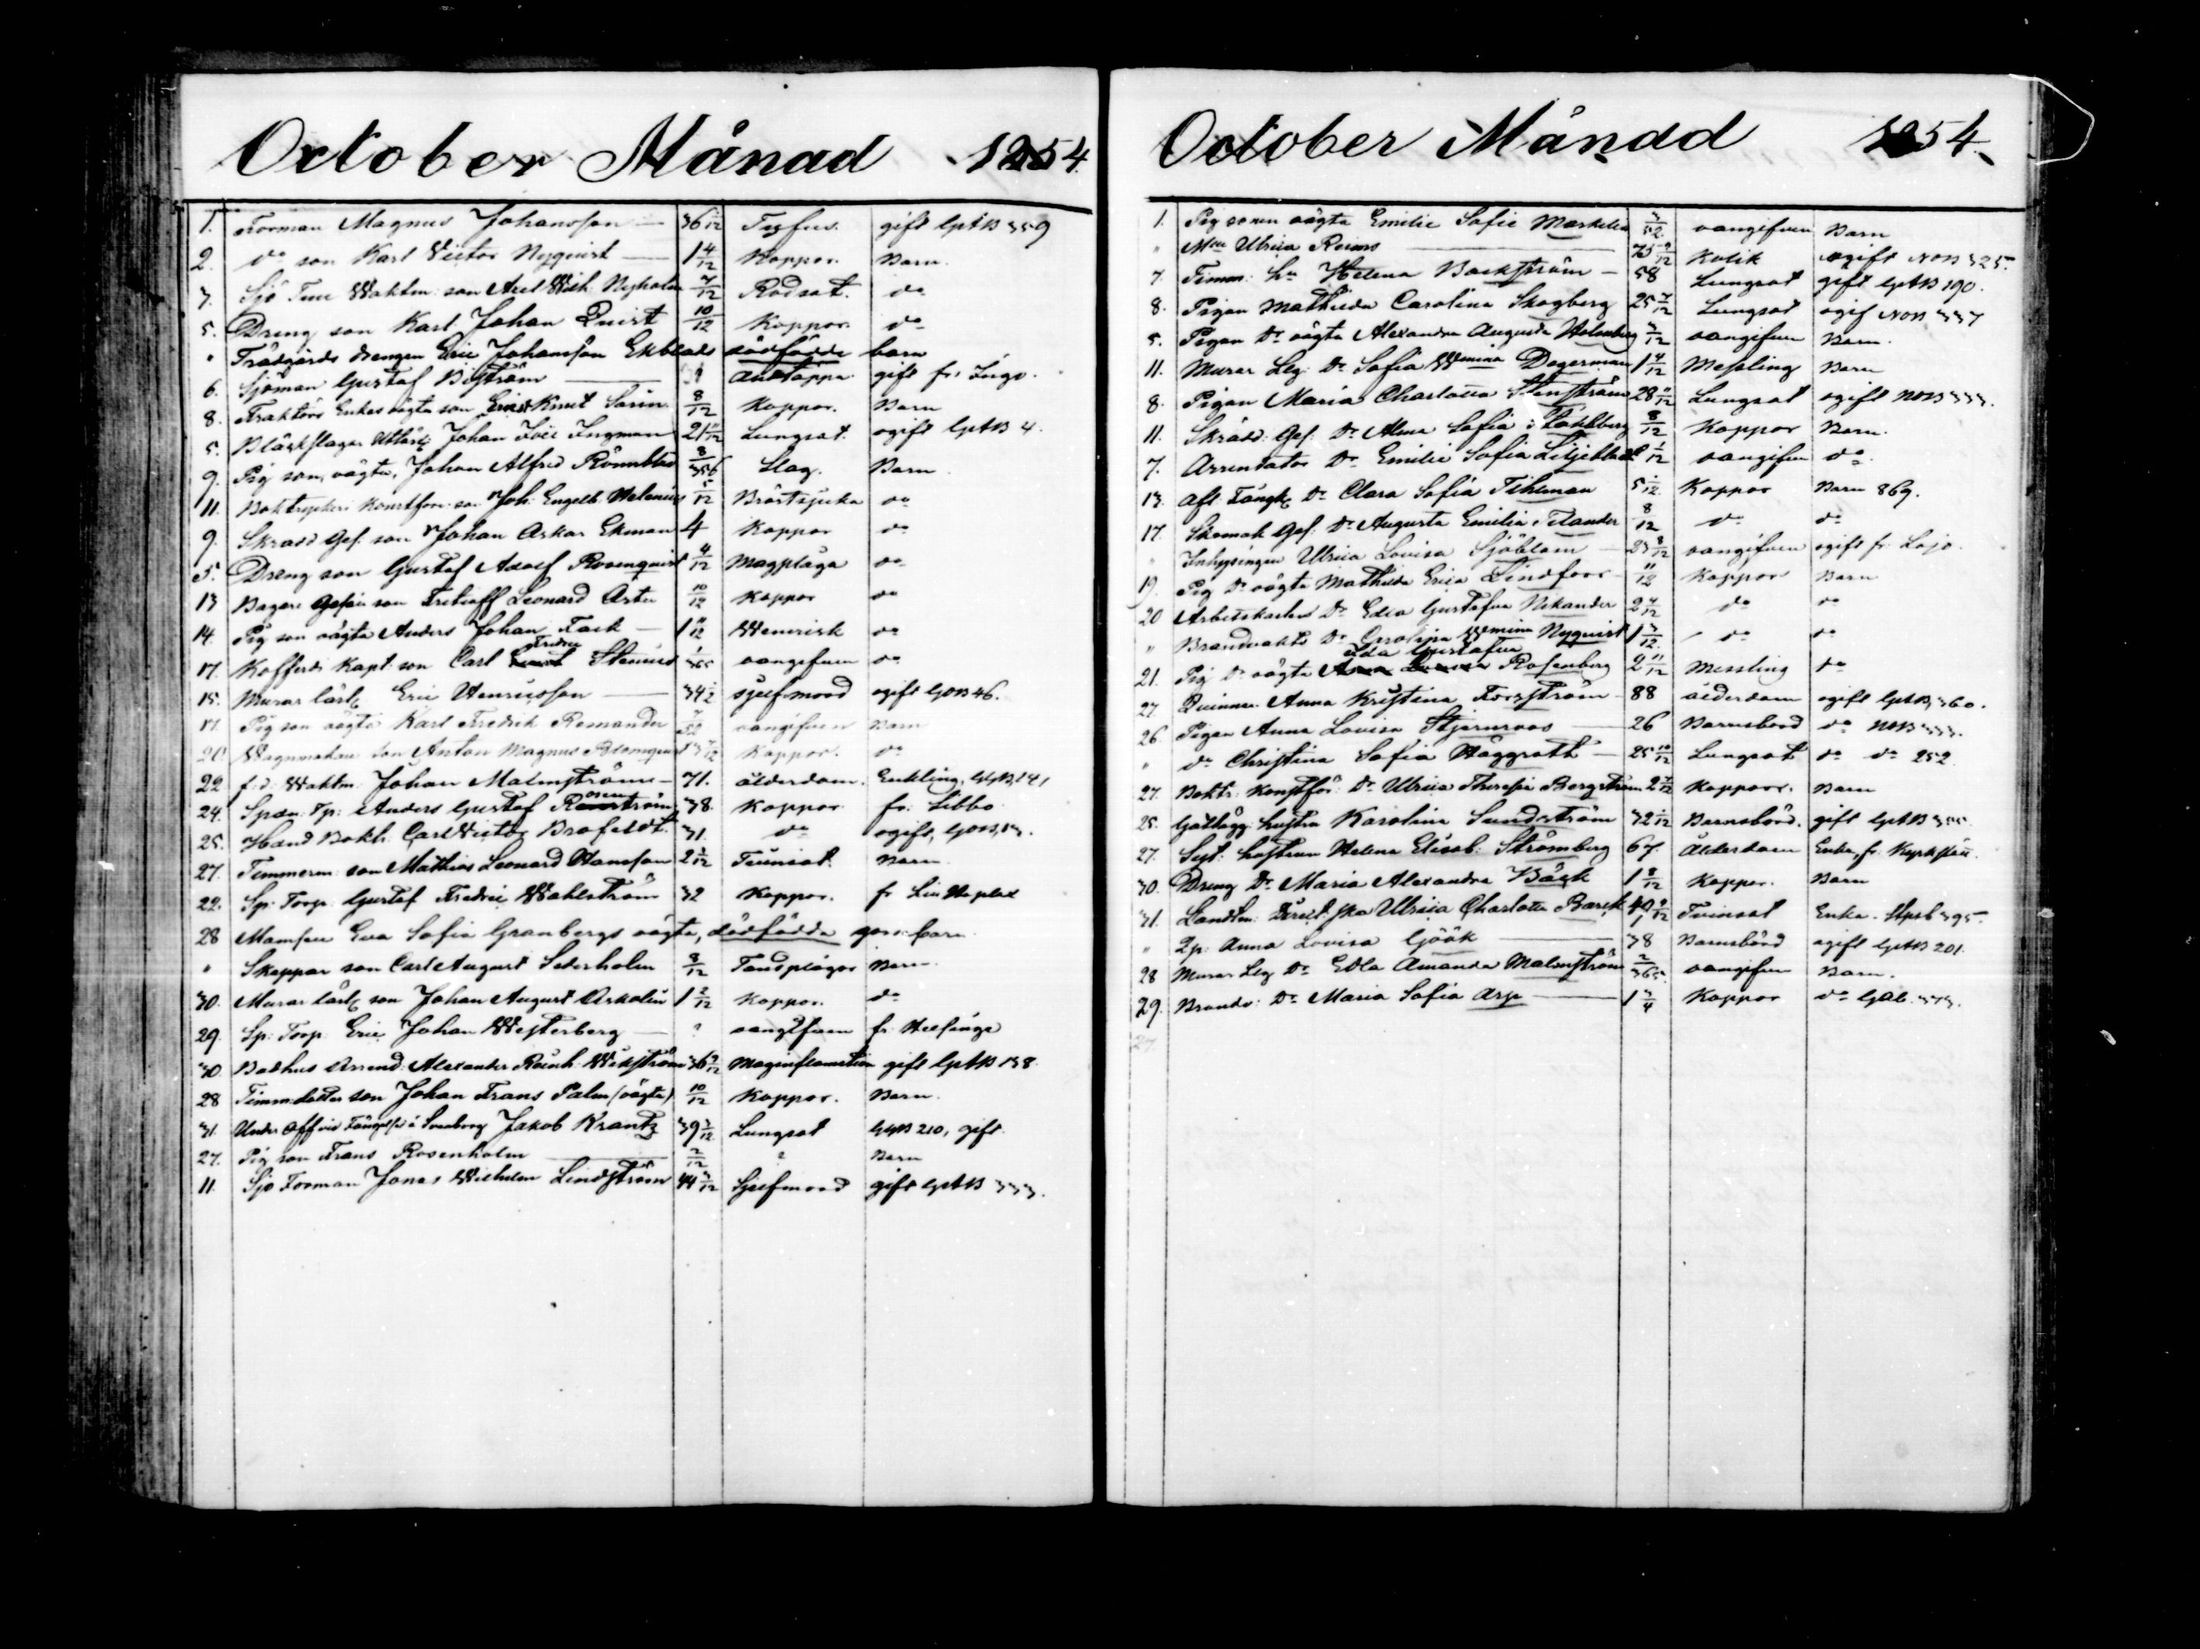 October Månad 1854.
1. Forman Magnus Johansson 36 1/12 Tyfus. gift GptB 359
2. do son Karl Victor Nyqvist 1 4/12 Koppor. Barn
3. Sjö Tull Waktm: son Axel Wilh: Nyholm 7/12 Rödsot. do
5. Dreng son Karl Johan Quist 10/12 Koppor. do
" Trädgårds drengen Eric Johansson Ekblads dödfödda barn
6. Sjöman Gustaf Byström andtäppa gift fr. Ingo.
8. Traktörs Enkas oägta son Knut Sarin 8/12 Koppor. Barn
5. Bläckslagar Johan Ingman 21 11/12 Lungsot. ogift GptB 4.
9. Pig son, oägta, Johan Alfred Rönnblad 8/365 Slag. Barn
11. Boktryckeri Konstför: son Joh: Engelb: Helenius 5/12 Bröstsjuka do
9. Skradd Ges: son Johan Oskar Ekman 4 Koppor do
5. Dreng son Gustaf Adolf Rosenqvist 4/12 Magplåga do
13 Bagare Gesäll son Leonard 10/12 Koppor do
14. Pig son oägta Anders Johan Fack 1 11/12 Wenerisk do
17. Kofferdi Kapt. son Carl Fredric Stenius 1/365 oangifven do
15. Murar lärl: Eric Henricsson 34 1/2 sjelfmord ogift GptB 46.
17. Pig son oägta Karl Fredrik Remander 7/52 oangifven Barn
20. Wagnmakare son Anton Magnus Blomqvist 7/12 Koppor. do
22 f: d: Waktm. Johan Malmström 71. ålderdom. Enkling, GptB, 141
24. Anders Gustaf 38. Koppor fr. Sibbo
25. Hand Bokh. Carl Victor Brofeldt. 31. do ogift,
27. Timmerm: son Mathias Leonard Hansson 2 1/12 Tvinsot. Barn
22. Sp: Torp: Gustaf Fredric Wahlström 32 Koppor.
28 Mamsell Eva Sofia Granbergs oägta, dödfödda gossebarn
" Skeppar son Carl August Sederholm 8/12 Tandplågor Barn
30. Murar lärl: son Johan August Askolin 1 2/12 Koppor. do
29. Sp: Torp. Eric Johan Westerberg ? oangifven fr. Helsinge
30 Badhus Arrend: Alexander Reinh: Wikström 36 9/12 Maginflamation gift GptB 138.
28 son Johan Frans Palm (oägta) 10/12 Koppor. Barn.
31. Under Officer Fängelse å Sveaborg Jakob Krantz 39 3/12 Lungsot GptB 210, gift
27. Pig son Frans Rosenholm 2/12 ? Barn
11. Sjö Forman Jonas Wilhelm Lindström 44 3/12 Sjelfmord gift GptB 333.
October Månad 1854.
1. Pig sonen oägta Emilie Sofie Markelin 3/52 oangifven Barn
" Mlle Ulrica Rooms 75 9/12 Kolik ogift NoB 325.
7. Timm: hu Helena Backström 58 Lungsot gift GptB 190.
8. Pigan Mathilda Carolina Skogberg 25 7/12 Lungsot ogif NoB 337
5. Pigan Dr oägta Alexandra Augusta Holmberg 3/12 oangifven Barn.
11. Murar Leg: Dr Sofia Wmina Dagerman 1 4/12 Messling Barn
8. Pigan Maria Charlotta Stenström 28 11/12 Lungsot ogift NoB 333.
11. Skrädd: Ges: Dr Alma Sofia Fahlberg 8/12 Koppor Barn.
7. Arrendator Dr Emilie Sofia Liljeblad 1/12 oangifven do
13. Aft: Fångk: Dr Clara Sofia Tihlman 5 1/12 Koppor Barn 869.
17. Skomak Ges: Dr Augusta Emilia Tilander 8/12 do do
" Inhysingen Ulrica Lovisa Sjöblom 23 8/12 oangifven ogift fr. Lojo.
19. Pig Dr oägta Mathilda Erica Lindfors 11/12 Koppor Barn
20 Arbetskarlen Dr Edla Gustafva Nikander 2 4/12 do do
" Brandvakts Dr Wmina Nyqvist 1 3/12 do do
21. Pig Dr oägta Ida Gustafva Rosenberg 2 11/12 Messling do
27. Qvinnan Anna Kristina Forsström 88 ålderdom ogift GptB, 360.
26. Pigan Anna Lovisa Stjernroos 26 Barnsbörd do NoB 333.
" do Christina Sofia Häggroth 25 10/12 Lungsot do do 252.
27. Boktr: Konstför: Dr Ulrica Theresia Bergström 2 7/12 Koppor. Barn
25. hustru Karolina Sundström 32 1/12 Barnsbörd. gift GptB
27. hustrun Helena Elisab: Strömberg 67 Ålderdom Enka, fr.
30. Dreng Dr Maria Alexandra Bäck 1 8/12 Koppor. Barn
31. Ulrica Charlotta Barck 40 9/12 Tvinsot Enka. 395.
" Qp: Anna Lovisa Göök 38 Barnsbörd ogift GptB 201.
28 Murar Leg Dr Edla Amanda Malmström 2/365 oangifven Barn.
29. Brandv: Dr Maria Sofia Arp 1 3/4 Koppor do
27.